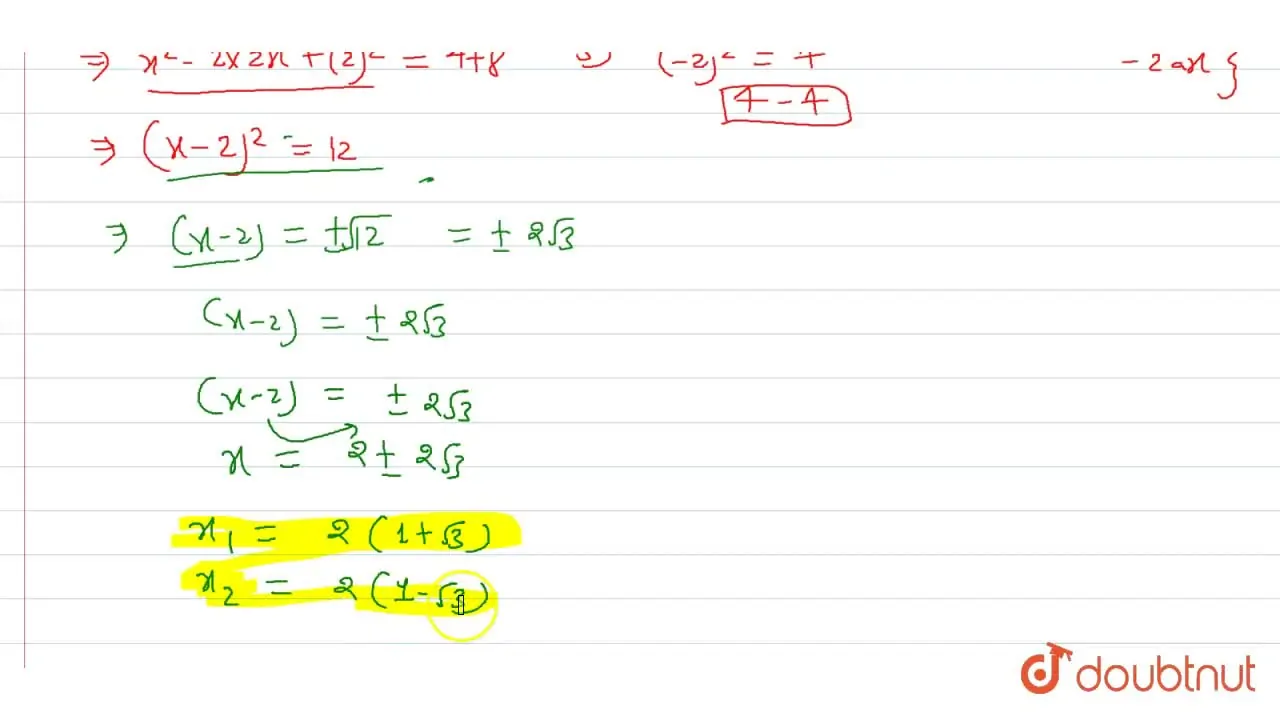 ⇒ x² - 2×2x + (2)² = 4+8 (-2)² = 4 - 2ax }
4 - 4
⇒ (x-2)² = 12
⇒ (x-2) = ±√12 = ± 2√3
(x-2) = ± 2√3
(x-2) = ± 2√3
x = 2 ± 2√3
x₁ = 2 (1+√3)
x₂ = 2 (1-√3)
doubtnut